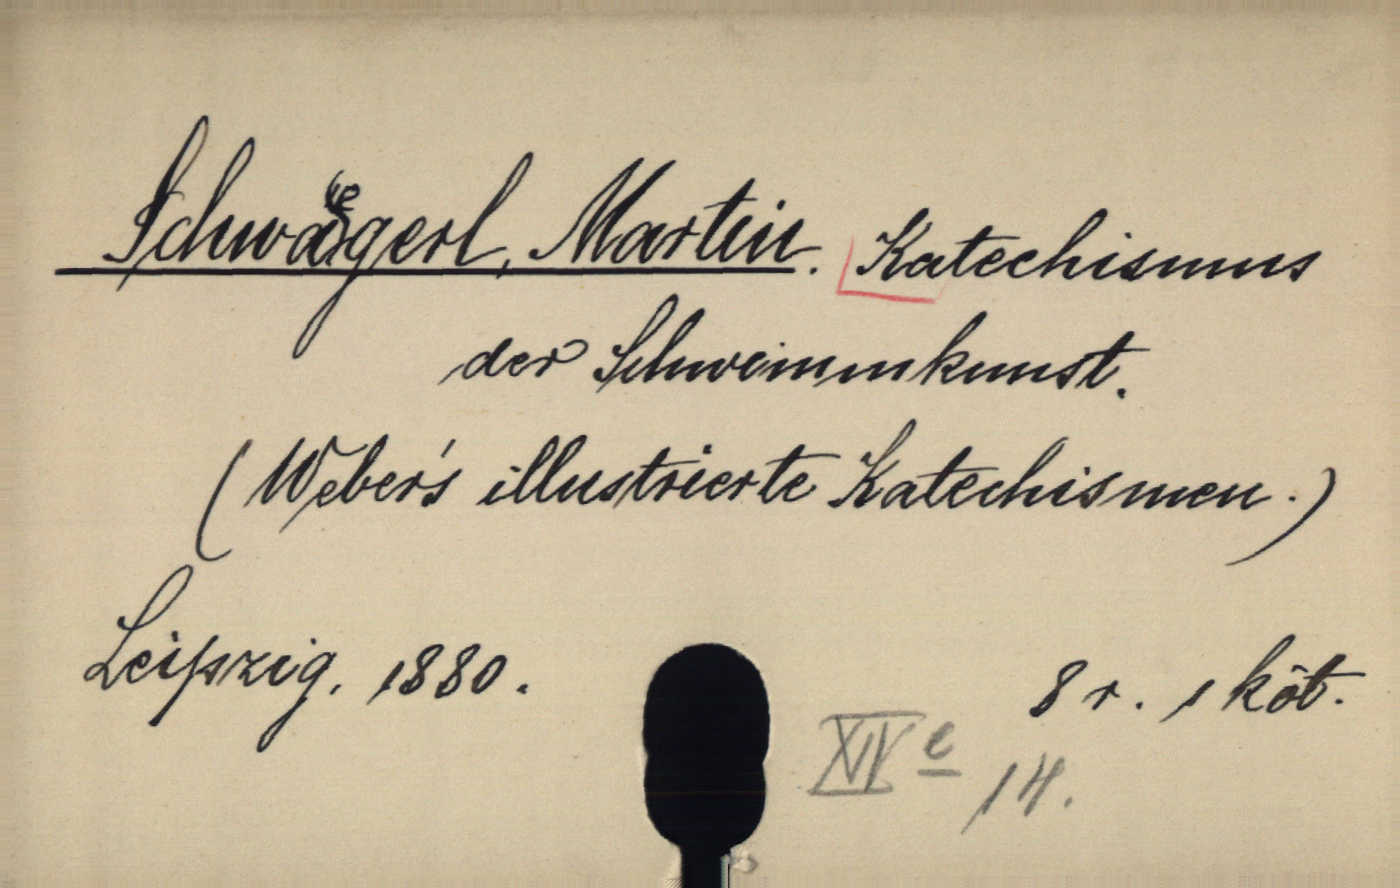 Schwägerl, Martin. Katechismus
der Schwimmkunst.
(Weber's illustrierte Katechismen.)
Leipzig, 1880. 8 r. 1 köt.
XIV e 14.